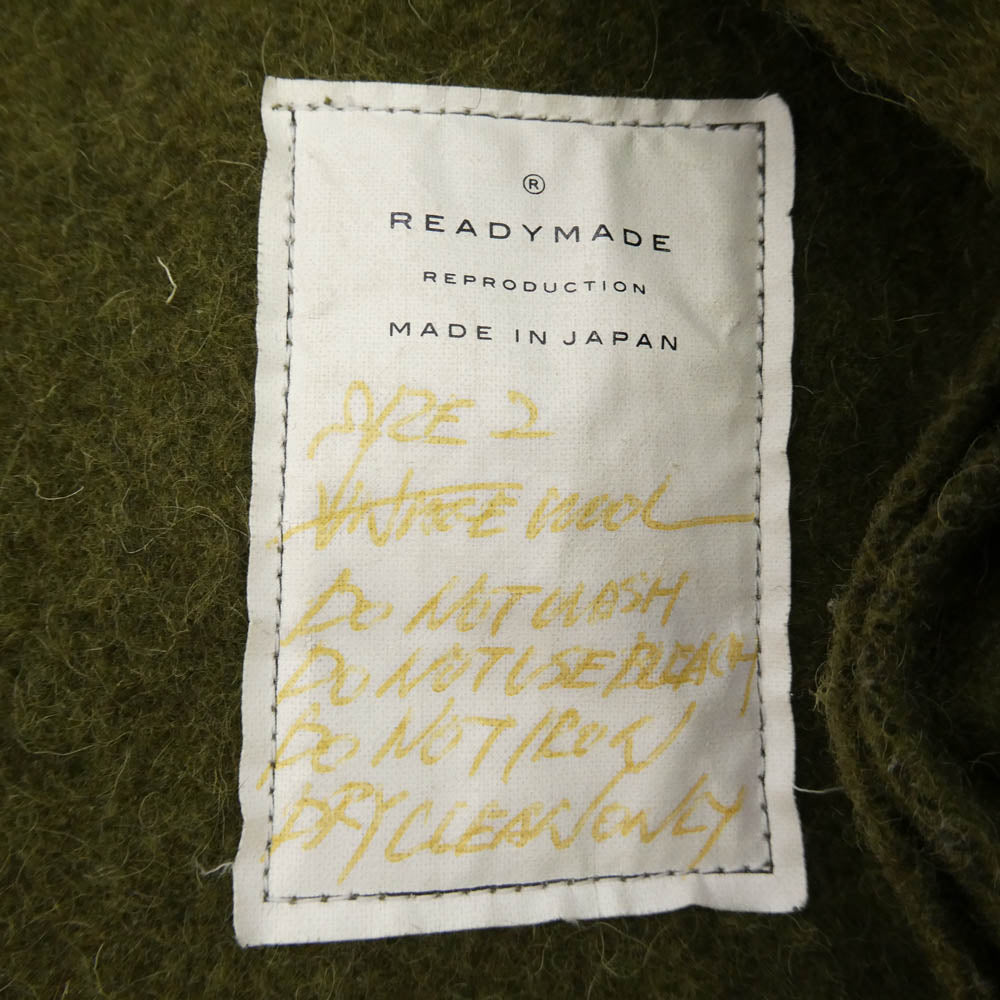 ®
READYMADE
REPRODUCTION
MADE IN JAPAN
SIZE 2
VINTAGE WOOL
DO NOT WASH
DO NOT USE BLEACH
DO NOT IRON
DRY CLEAN ONLY